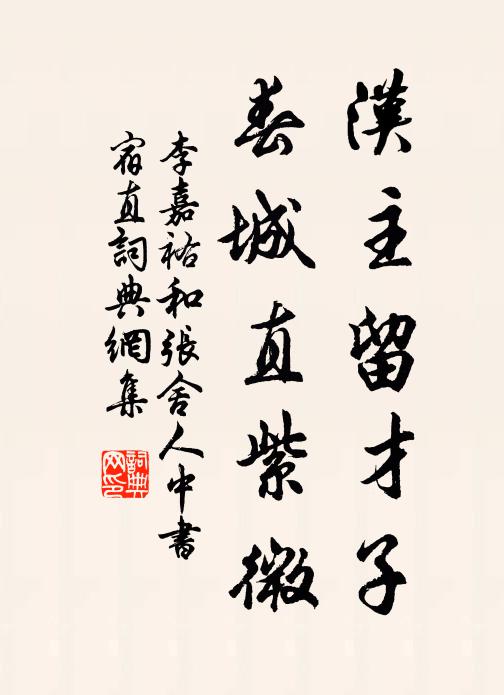 漢主留才子
春城直紫微
李嘉祐和張舍人中書
宿直詞典網集
詞典
网印